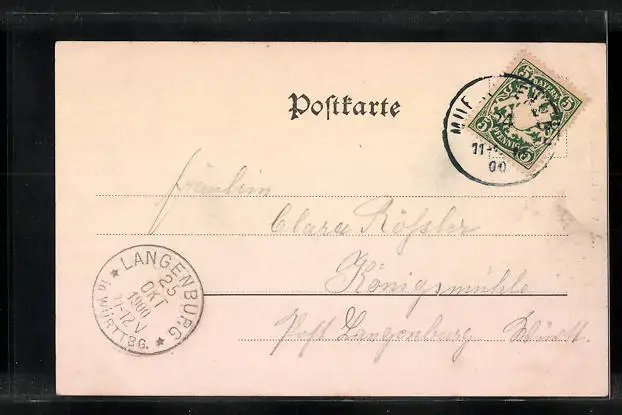 Postkarte
5 BAYERN 5
5 PFENNIG 5
24
11-12
00
Fräulein
Clara Rößler
Königsmühle
Post Langenburg Württ.
LANGENBURG
25
OKT
1900
11-12 V
in WÜRTTBG.